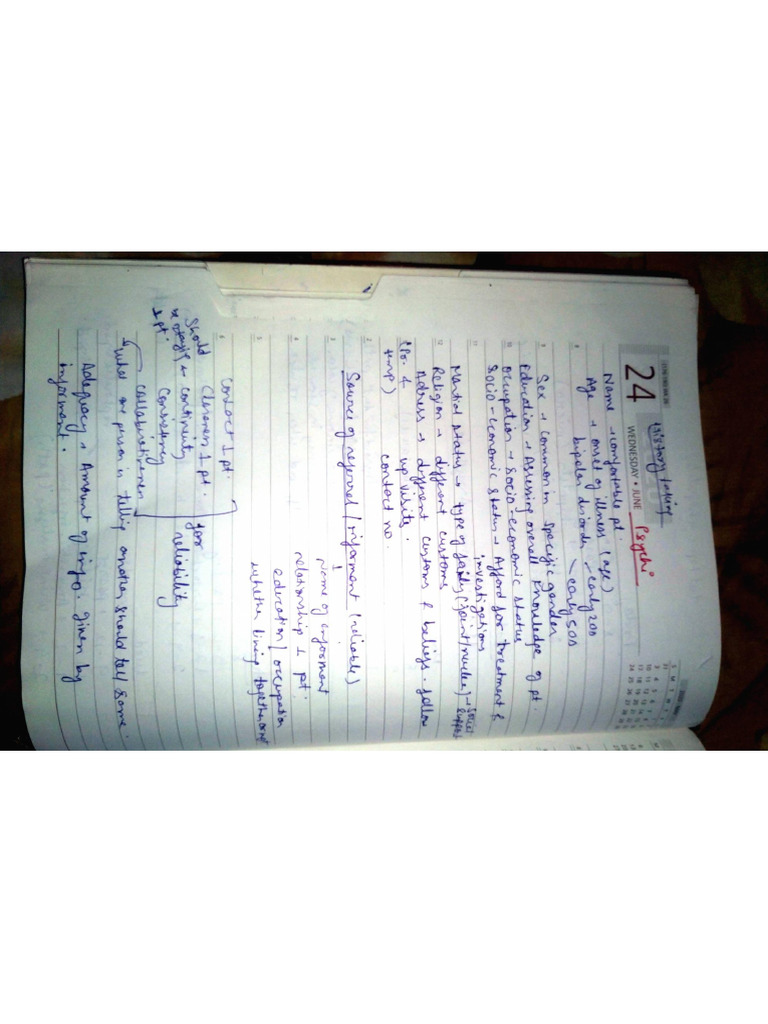 History taking
Psychi
24 WEDNESDAY • JUNE
Name → comfortable pt.
Age → onset of illness (age)
bipolar disorder - early 20s
- early 50s
Sex → common in specific gender
Education → Assessing overall knowledge of pt.
Occupation → Socio-economic status
Socio-economic status → Afford for treatment &
investigations
Marital status → type of family (joint/nuclear) → Social
support
Religion → different customs
Adress → different customs & beliefs. follow
up visits.
contact no.
Source of referred / informent (reliable)
Name of informent
relationship ⊥ pt.
education / occupation
whether living together or not
Contact ⊥ pt.
Closeness ⊥ pt.
Should
⊥ pt.
continuity
Consistency
for
reliability
What one person is telling another should tell same.
Adequacy → Amount of info. given by
informent.